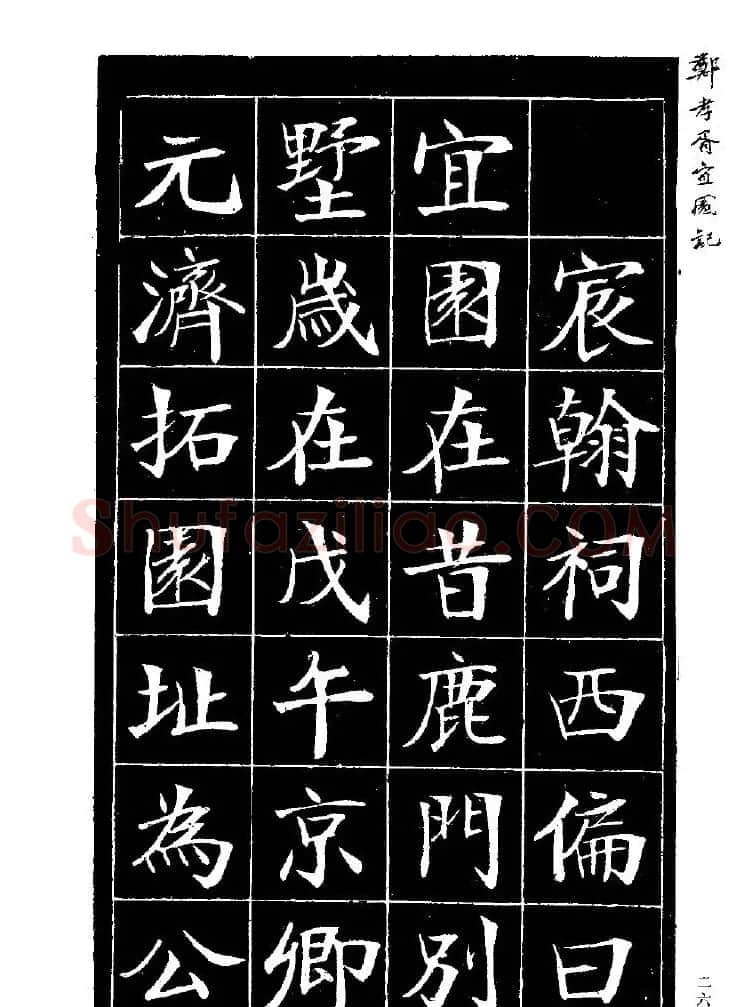 鄭孝胥宜園記
宸翰祠西偏曰
宜園在昔鹿門別
墅歲在戊午京卿
元濟拓園址為公
Shufaziliao.COM
二六